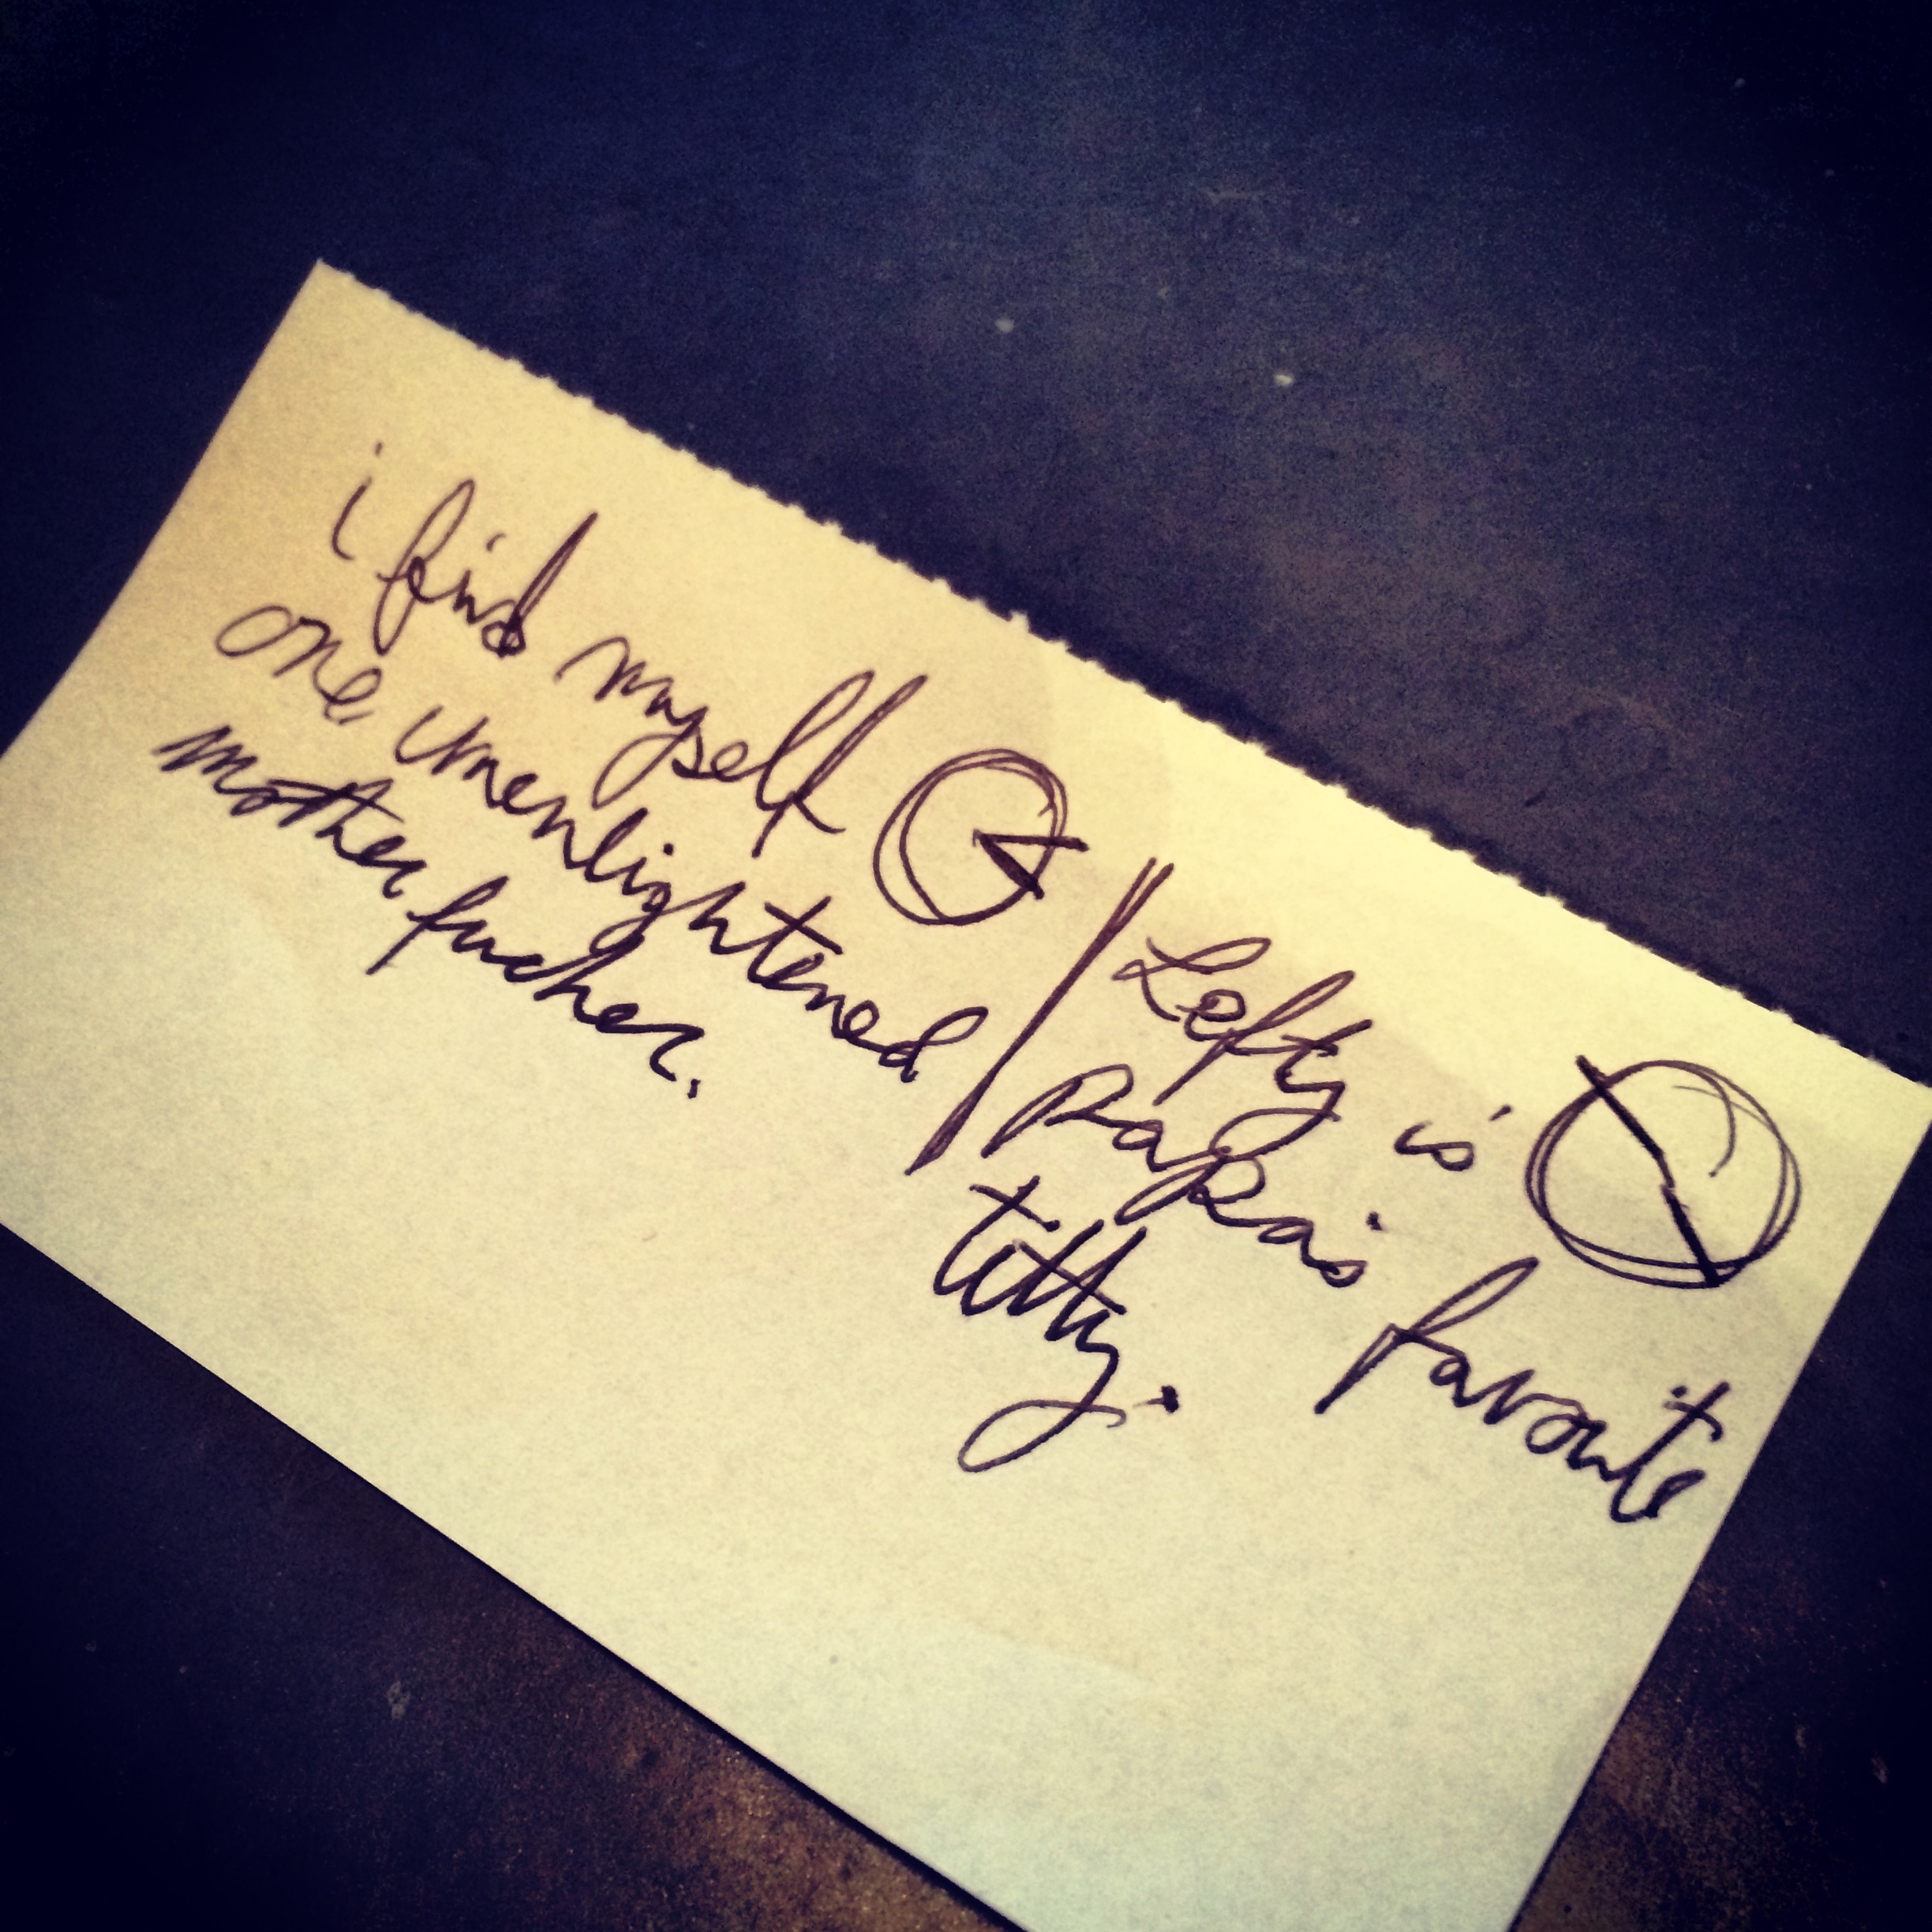 i find myself
one unenlightened
mother fucher.
Lefty is
PaPa's favorite
titty.